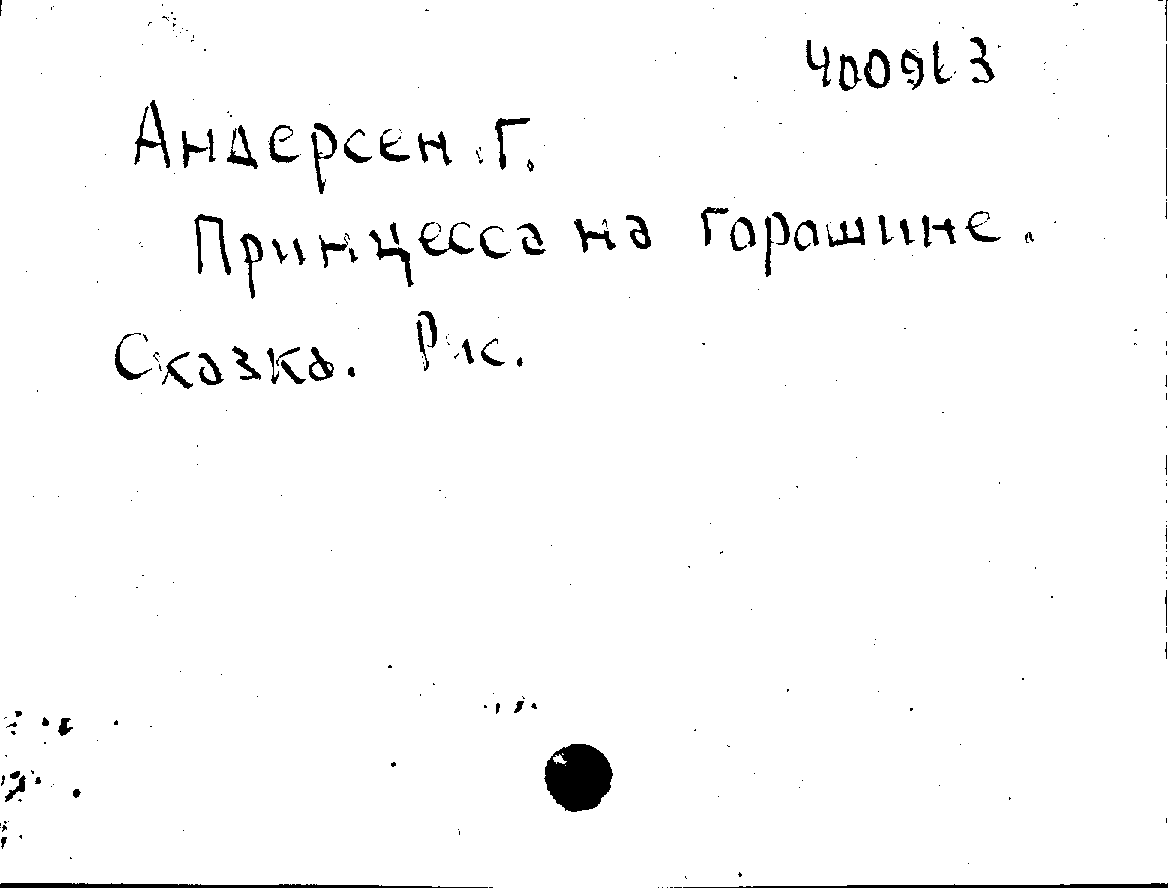 Андерсен Г.
Принцесса на горошине.
Сказка. Рис.